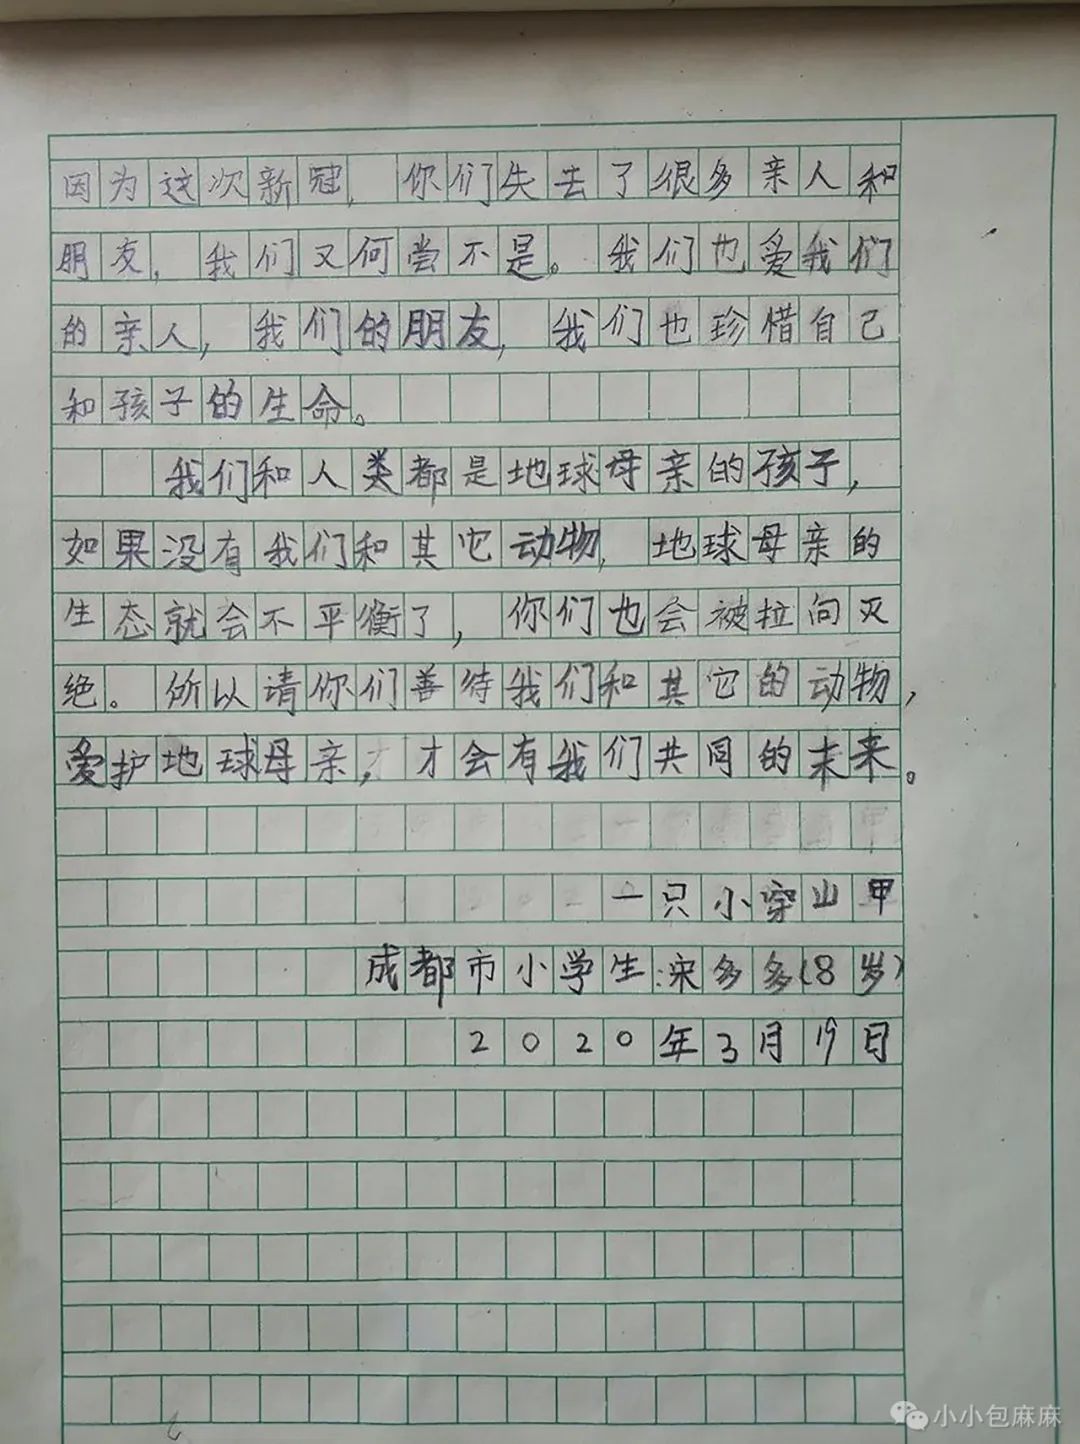 因为这次新冠，你们失去了很多亲人和
朋友，我们又何尝不是。我们也爱我们
的亲人，我们的朋友，我们也珍惜自己
和孩子的生命。
我们和人类都是地球母亲的孩子，
如果没有我们和其它动物，地球母亲的
生态就会不平衡了，你们也会被拉向灭
绝。所以请你们善待我们和其它的动物，
爱护地球母亲，才会有我们共同的未来。
一只小穿山甲
成都市小学生：宋多多（8岁）
2020年3月19日
小小包麻麻